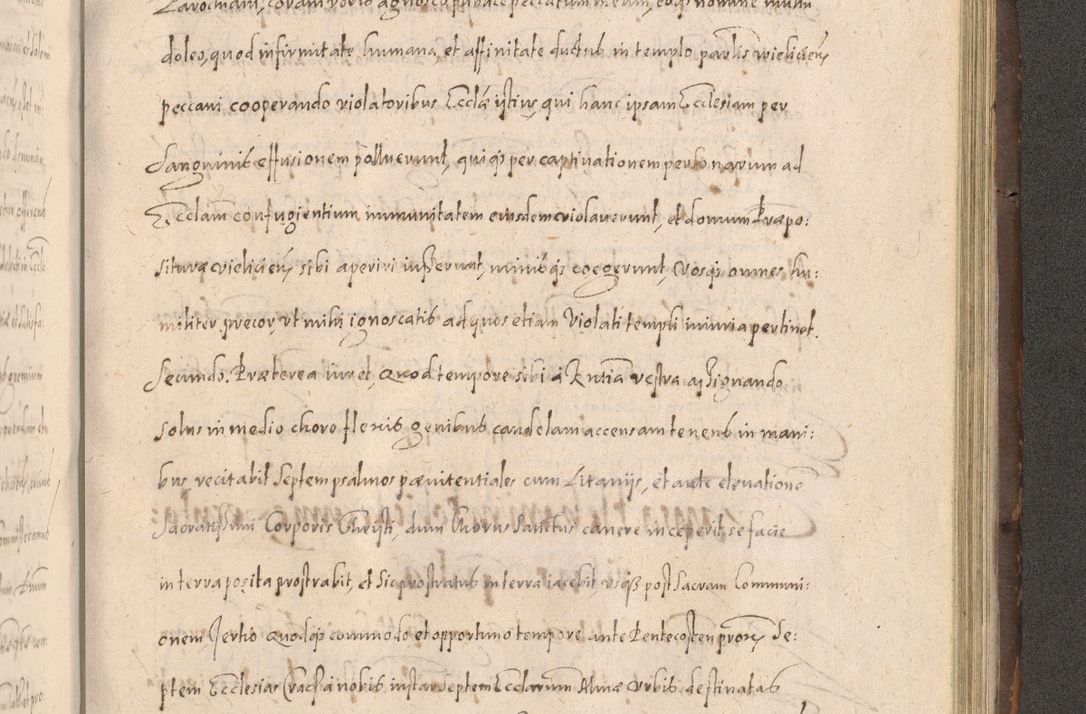 doleo, quod infirmitate humana, et affinitate ductus in templo parlis wieliciens
peccavi cooperando violatoribus Ecclae istius, qui hanc ipsam Ecclesiam per
Sanguinis effusionem polluerunt, quiqȝ per captivationem personarum ad
Ecclam confugientium immunitatem eiusdem violaverunt, et domum Præpo:
situræ vielicien, sibi aperiri minisqȝ coegerunt, Vosqȝ omnes hu:
militer precor, vt mihi ignoscatis ad quos etiam Violati templi iniuria pertinet.
Secundo. Præterea iuret, Quod tempore sibi à Rntia vestra assignando
solus in medio choro flexis genibus candelam accensam tenens in mani:
bus recitabit Septem psalmos pænitentiales cum Litanijs, et ante elevatione
Sacratissimi Corporis Christi, dum Chorus Sanctus canere inceperit, se facie
in terra posita prostrabit, et Sic prostratus in terra iacebit, vsqȝ post Sacram Communi:
onem, Tertio Quodqȝ commodo et opportuno tempore ante Pentecosten prox, Se:
ptem Ecclesias Cracae à nobis instar Septem Ecclarum Almæ Vrbis destinatas